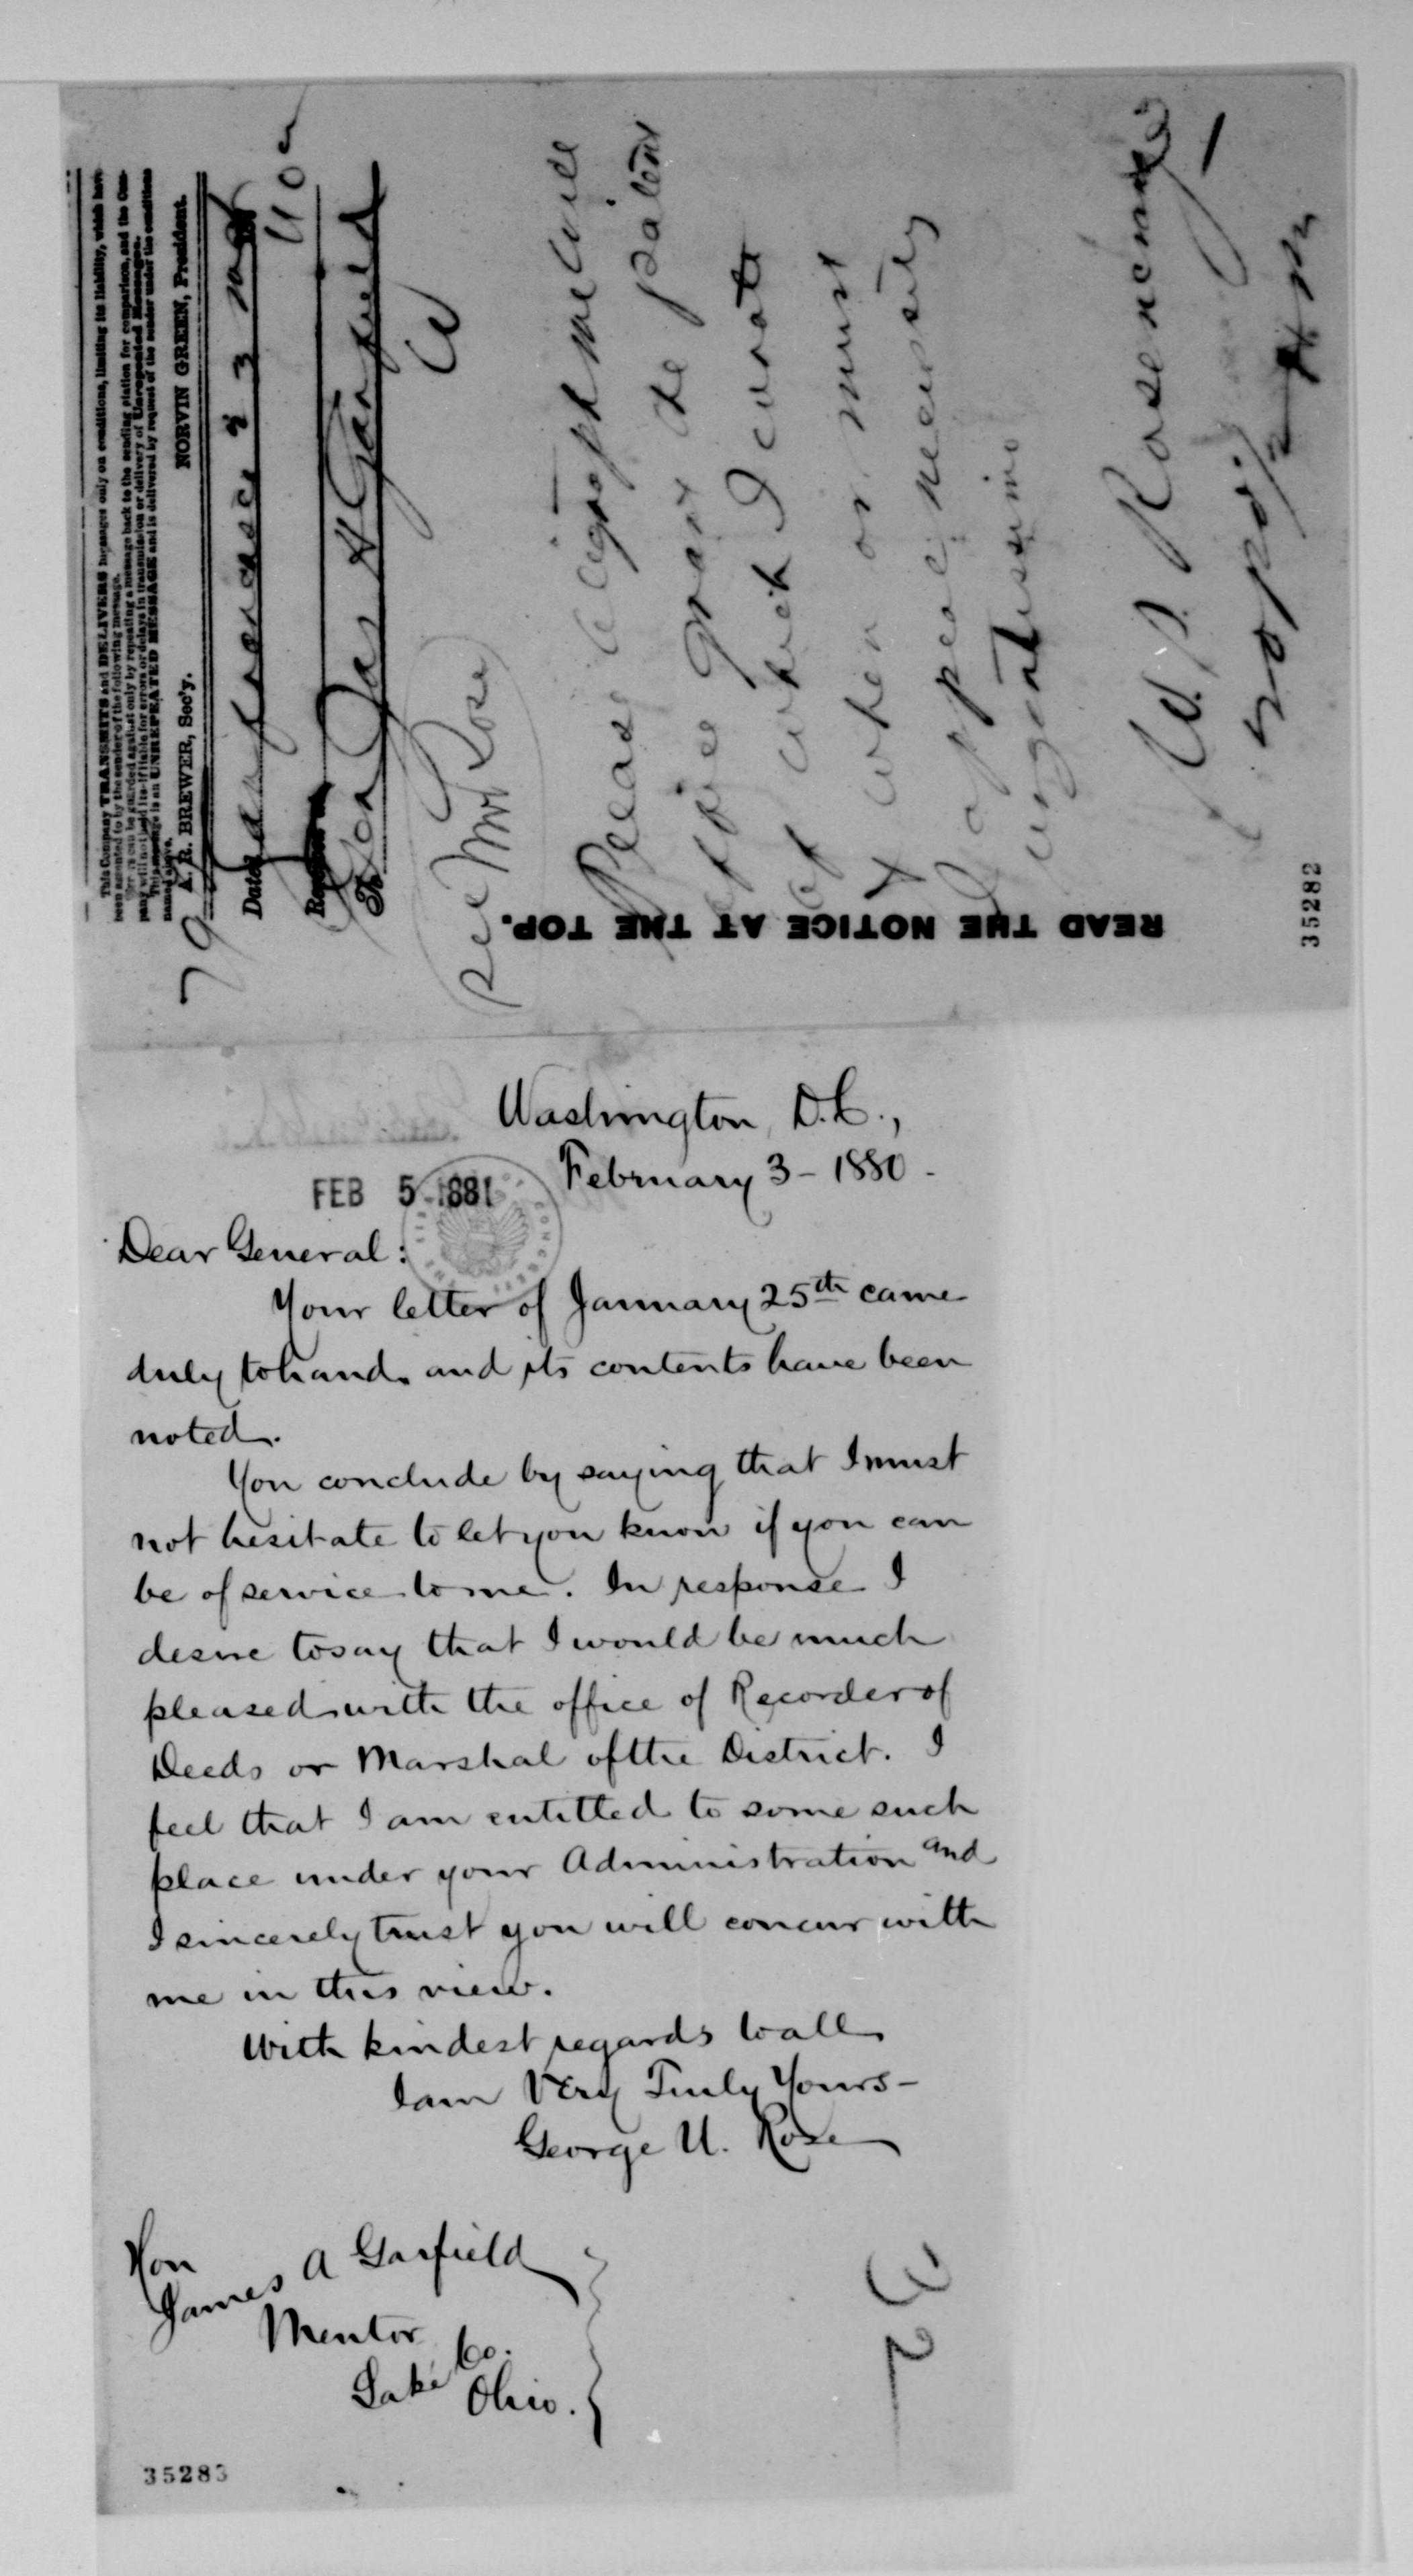 This Company TRANSMITS and DELIVERS messages only on conditions, limiting its liability, which have
been assented to by the sender of the following message.
Errors can be guarded against only by repeating a message back to the sending station for comparison, and the Com-
pany will not hold itself liable for errors or delays in transmission or delivery of Unrepeated Messages.
This message is an UNREPEATED MESSAGE and is delivered by request of the sender under the conditions
named above.
A. R. BREWER, Sec'y. NORVIN GREEN, President.
79
Dated San francisco 2 3
To Hon Jas A Garfield
Please telegraph me will
office grant the patent
of which I wrote
& when or must
I appeal necessity
urgent
W. S. Rosencrans
READ THE NOTICE AT THE TOP.
35282
Washington, D.C.,
February 3 - 1880 -
FEB 5 1881
Dear General:
Your letter of January 25th came
duly to hand and its contents have been
noted.
You conclude by saying that I must
not hesitate to let you know if you can
be of service to me. In response I
desire to say that I would be much
pleased with the office of Recorder of
Deeds or Marshal of the District. I
feel that I am entitled to some such
place under your Administration and
I sincerely trust you will concur with
me in this view.
With kindest regards to all
I am Very Truly Yours-
George U. Rose
Hon
James A Garfield
Mentor
Lake Co.
Ohio.
35283